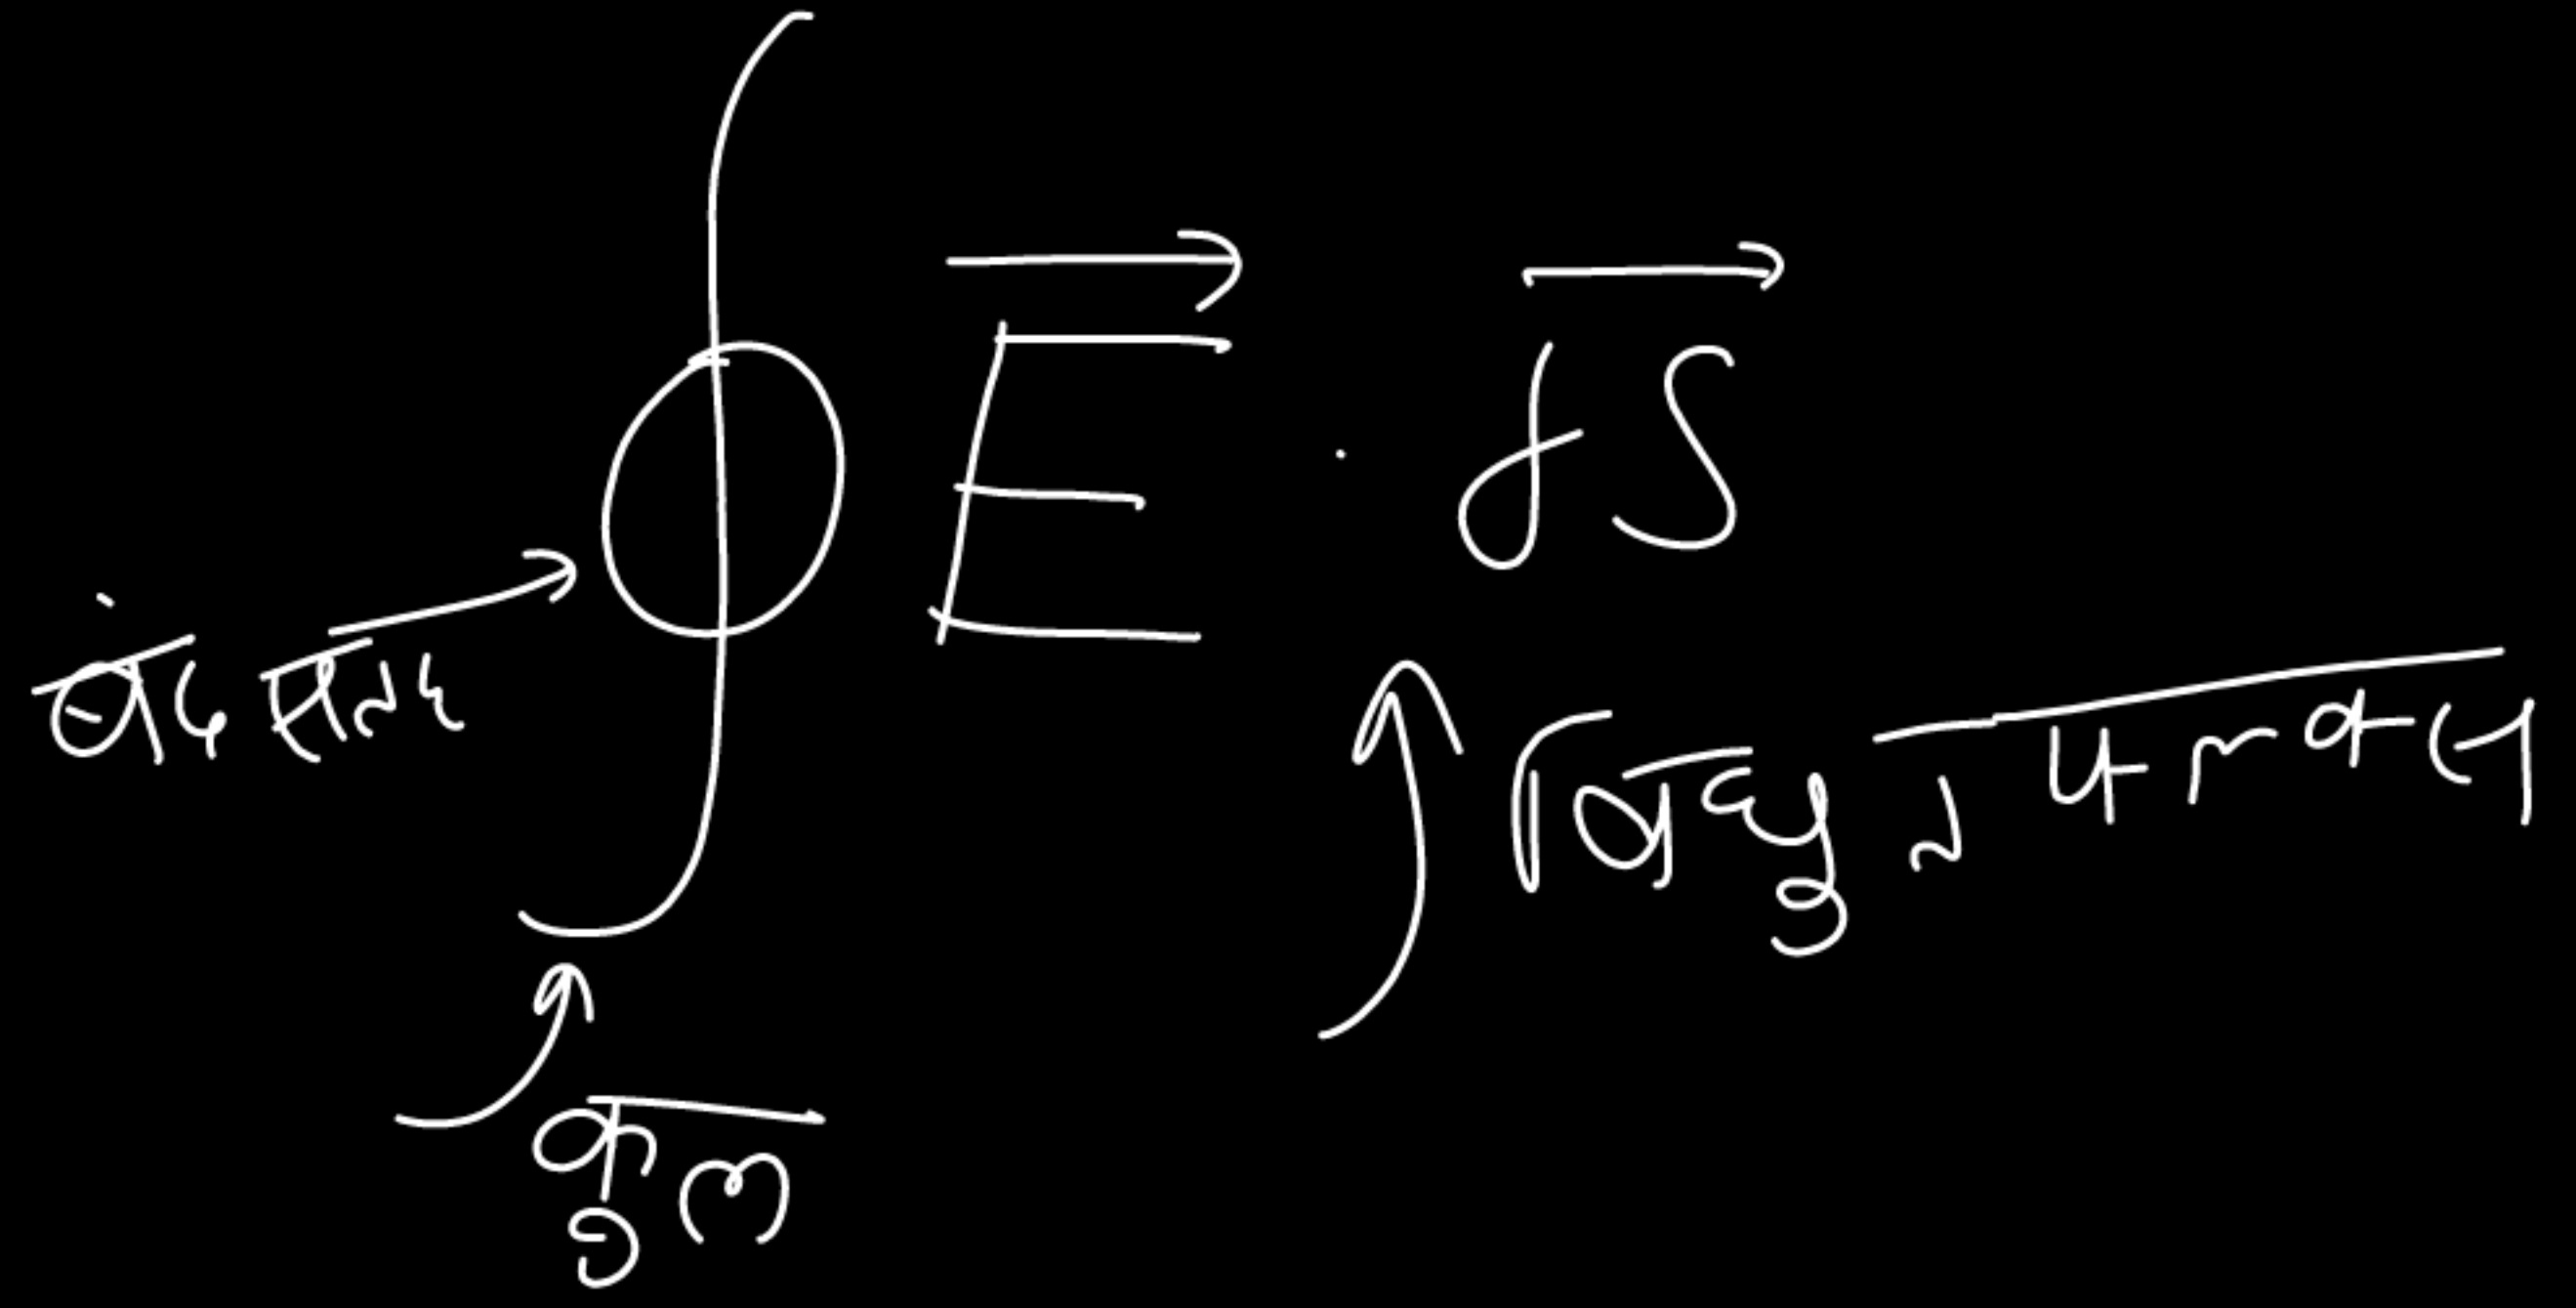 ∮ E⃗ · d⃗S
बंद सतह
विद्युत फ्लक्स
कुल